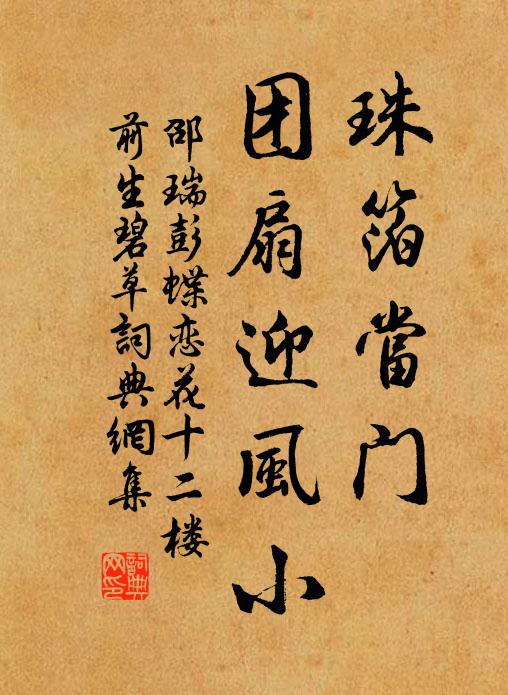 珠箔當门
团扇迎風小
邵瑞彭蝶恋花十二楼
前生碧草詞典網集
詞典
网印